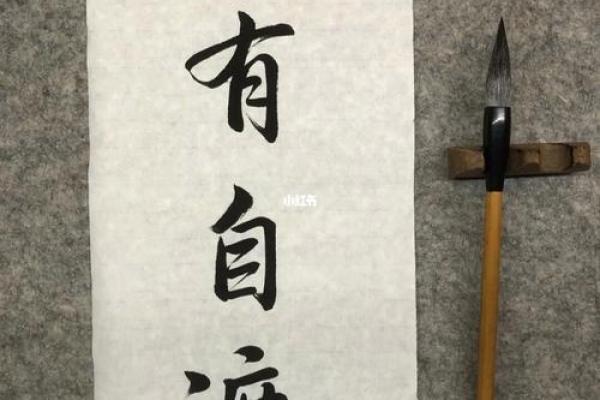 有自
小红书